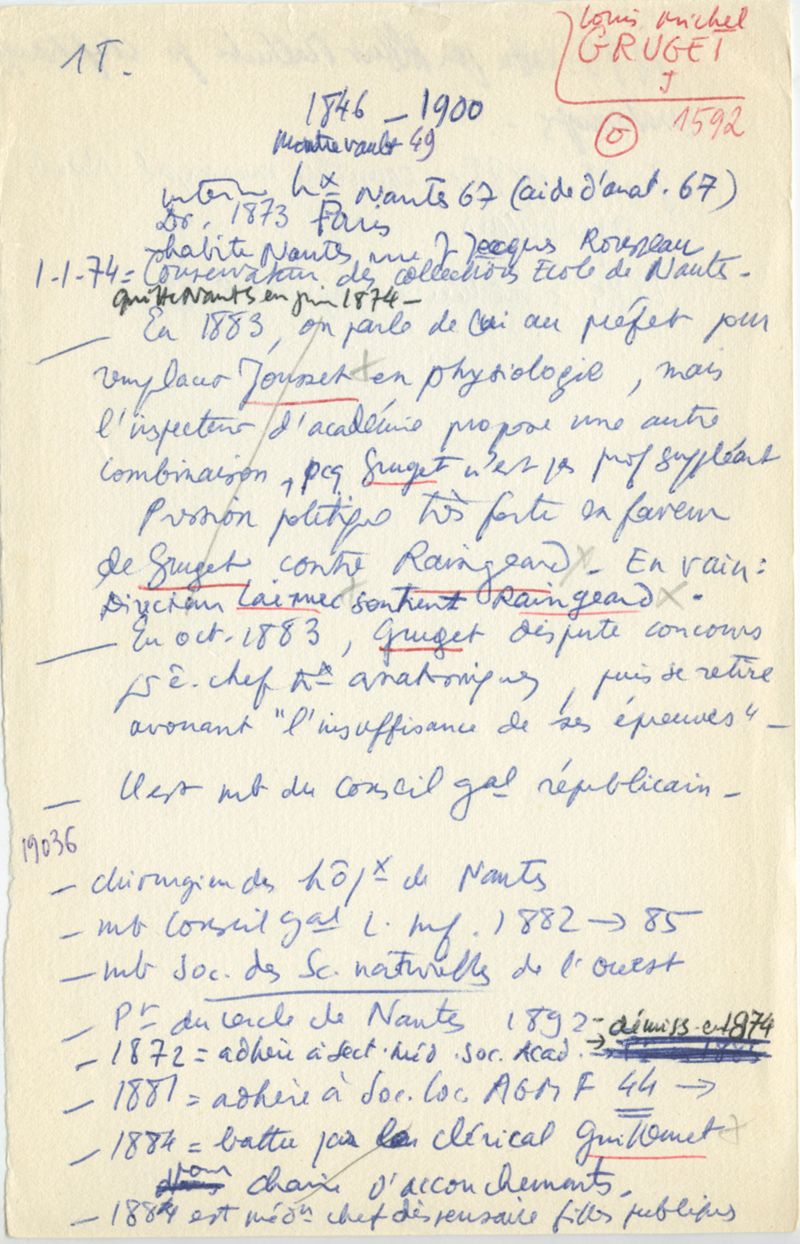 1T.
Louis Michel
GRUGET
J
1592
1846 - 1900
Montrevault 49
interne hx Nantes 67 (aide d'anat. 67)
Dr. 1873 Paris
habite Nantes rue J Jacques Rousseau
1-1-74 = Conservateur des collections Ecole de Nantes -
quitte Nantes en juin 1874 -
— En 1883, on parle de lui au préfet pour
remplacer Jousset en physiologie, mais
l'inspecteur d'académie propose une autre
combinaison, pcq Gruget n'est pas prof suppléant
Pression politique très forte en faveur
de Gruget contre Raingeard - En vain :
Directeur Laennec soutient Raingeard .
— En oct. 1883, Gruget dispute concours
chef tx anatomiques, puis se retire
avouant "l'insuffisance de ses épreuves" -
— Il est mb du Conseil gal républicain -
19036
— chirurgien des hôpx de Nantes
— mb Conseil gal L. Inf. 1882 → 85
— mb Soc. des Sc. naturelles de l'ouest
— Pr du cercle de Nantes 1892 -
— 1872 = adhère à sect. méd. Soc. Acad. → démiss. en 1874
— 1881 = adhère à Soc. loc. AGMF 44 →
— 1884 = battu par le clérical Guillemet
pour chaire d'accouchements.
— 1884 est médn chef dispensaire filles publiques